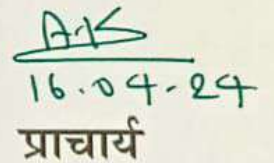 16.04-24
प्राचार्य